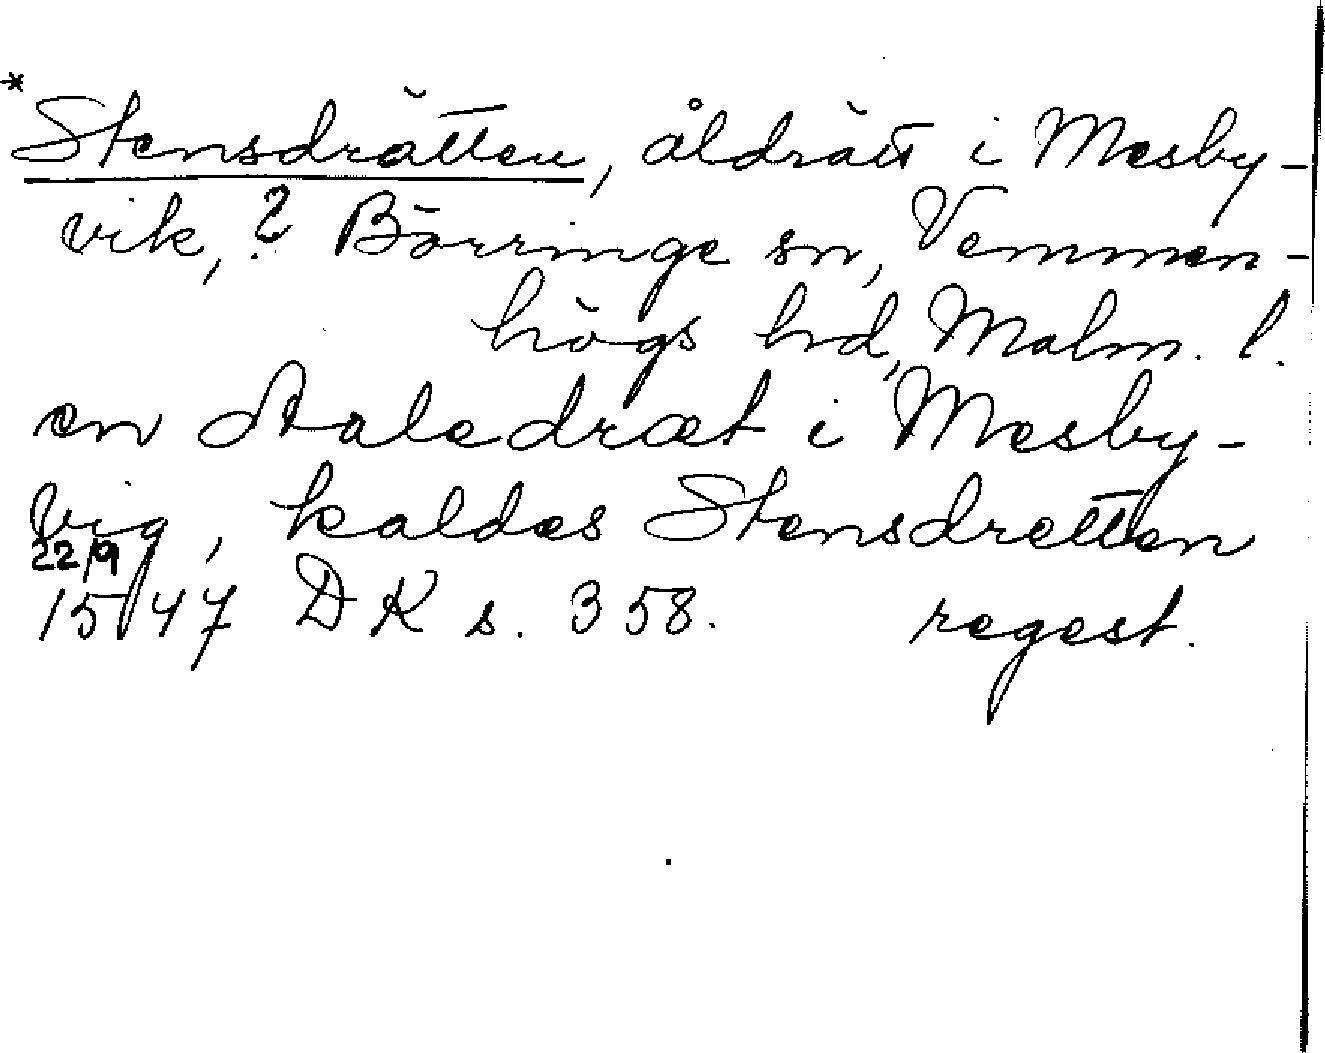 *
Stensdrätten, åldrätt i Mesby-
vik, ? Börringe sn, Vemmen-
högs hrd, Malm. l.
en Aaledræt i Mesby-
vig, kaldes Stensdretten
22/9
1547 DK s. 358. regest.